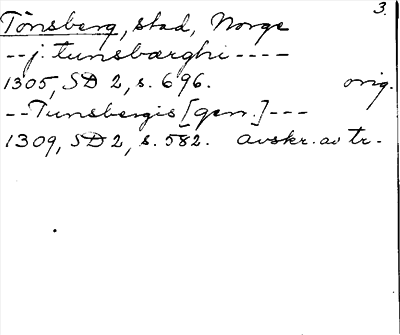 3.
Tönsberg, stad, Norge
-- j. tunsbærghi ----
1305, SD 2, s. 696. orig.
-- Tunsbergis [gen.] ---
1309, SD 2, s. 582. avskr. av tr.